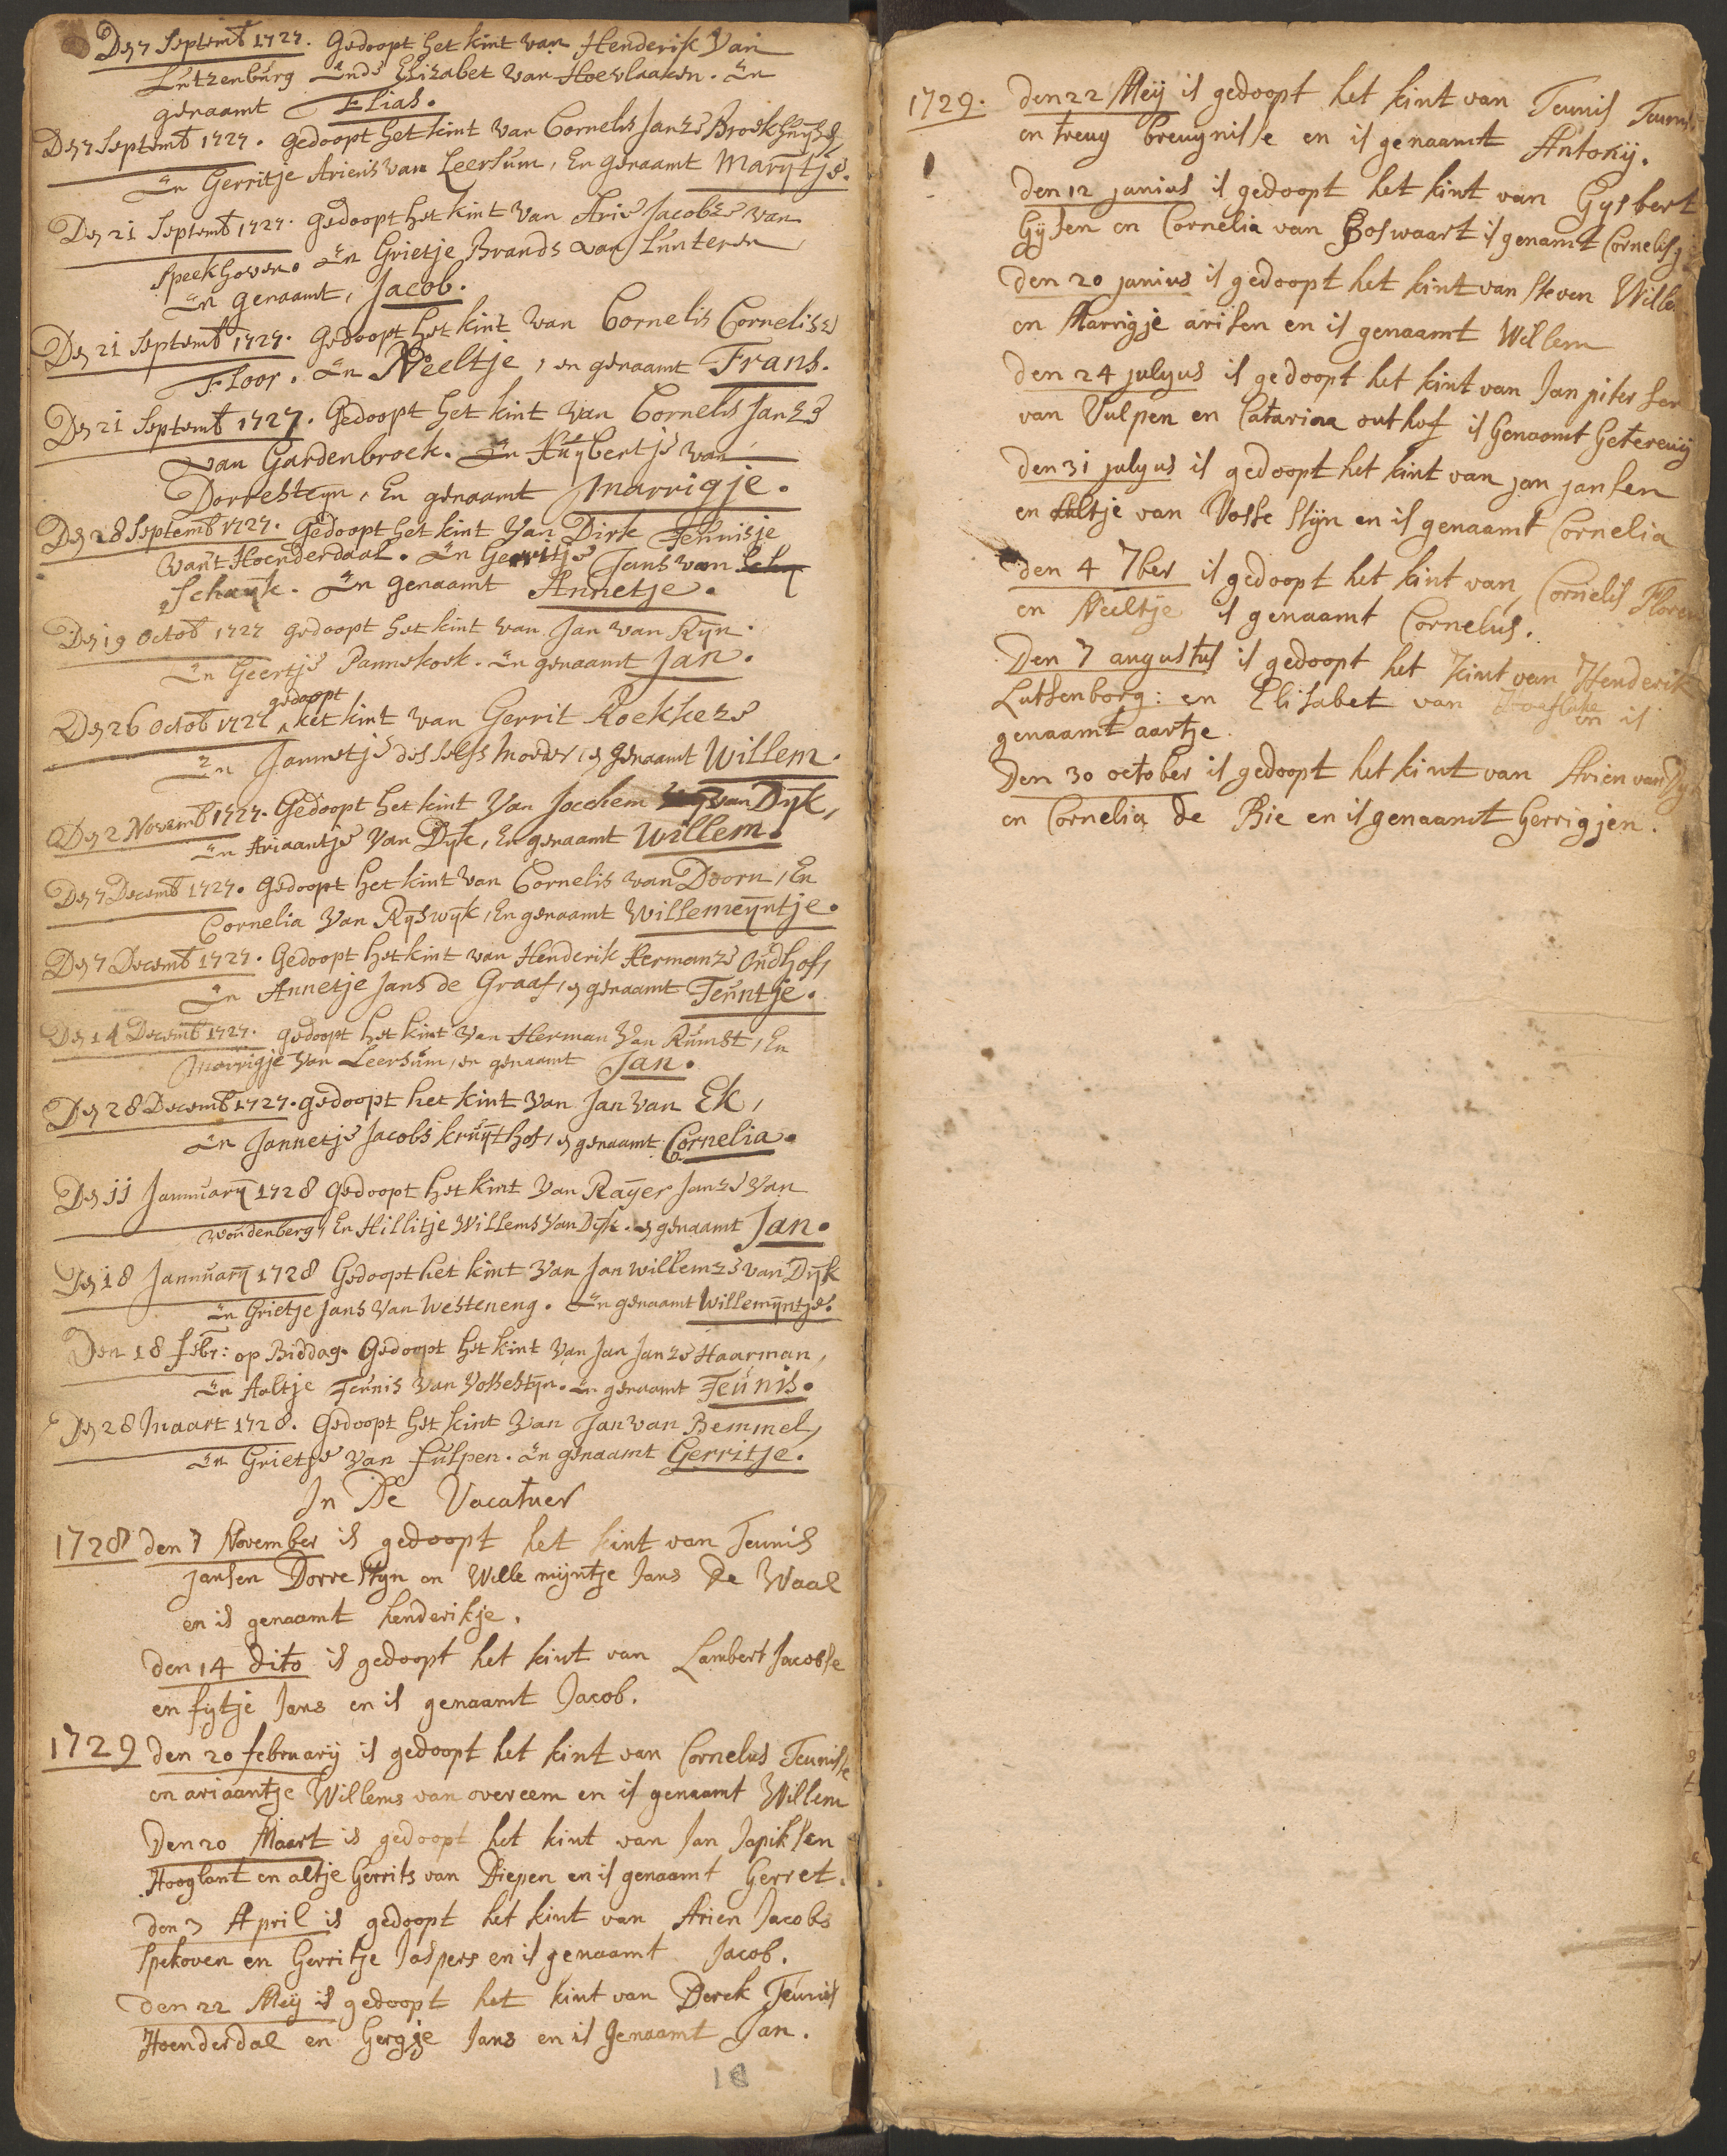 Den 7 Septemb 1727. Gedoopt het kint van Henderik Van
Lutzenburg Ende Elizabet van Hoevlaaken. En
genaamt Elias.
Den 7 Septemb 1727. Gedoopt het kint van Cornelis Janze Broekhuyze,
En Gerritje Ariens van Leersum, En genaamt Marytje.
Den 21 Septemb 1727. Gedoopt het kint van Arie Jacobze van
Speekhoven. En Grietje Brands van Lunteren
En genaamt, Jacob.
Den 21 Septemb 1727. Gedoopt het kint van Cornelis Cornelisze
Floor. En Neeltje, en genaamt Frans.
Den 21 Septemb 1727. Gedoopt het kint van Cornelis Janze
van Gardenbroek. En Huybertje van
Dorresteyn, En genaamt Marrigje.
Den 28 Septemb 1727. Gedoopt het kint Van Dirk Teunisje
van't Hoenderdaal. En Gerritje Jans van
Schayk. En genaamt Annetje.
Den 19 Octob 1727 Gedoopt het kint van Jan van Ryn.
En Geertje Pannekoek. En genaamt Jan.
Den 26 Octob 1727 gedoopt het kint van Gerrit Roekkeze
En Jannetje desselfs Moeder, en genaamt Willem.
Den 2 Novemb 1727. Gedoopt het kint Van Jochem van Dyk,
En Ariaantje Van Dyk, En genaamt Willem.
Den 7 Decemb 1727. Gedoopt het kint van Cornelis van Doorn, En
Cornelia Van Ryswyk, En genaamt Willemeyntje.
Den 7 Decemb 1727. Gedoopt het kint van Henderik Hermanze Oudhof,
En Annetje Jans de Graaf, en genaamt Teuntje.
Den 14 Decemb 1727. gedoopt het kint van Herman Van Rumst, En
Marrigje van Leersum, en genaamt Jan.
Den 28 Decemb 1727. gedoopt het kint van Jan van Ek,
En Jannetje Jacobs kruythof, en genaamt Cornelia.
Den 11 Jannuary 1728 Gedoopt het kint Van Rayer Janze Van
Woudenberg, En Hillitje Willems Van Dyk. en genaamt Jan.
Den 18 Jannuary 1728 Gedoopt het kint Van Jan Willemze van Dyk
En Grietje Jans Van Westeneng. En genaamt Willemyntje.
Den 18 febr: op Biddag. Gedoopt het kint Van Jan Janze Haarman,
En Aaltje Teunis Van Vossestyn. En genaamt Teunis.
Den 28 Maart 1728. Gedoopt het kint Van Jan van Bemmel,
En Grietje Van fulpen. En genaamt Gerritje.
In De Vacatuer
1728 den 7 November is gedoopt het kint van Teunis
Jansen Dorrestyn en Wille mijntje Jans De Waal
en is genaamt henderikje.
den 14 dito is gedoopt het kint van Lambert Jacobse
en fijtje Jans en is genaamt Jacob.
1729 den 20 februarij is gedoopt het kint van Cornelus Teunisse
en ariaantje Willems van overeem en is genaamt Willem
Den 20 Maart is gedoopt het kint van Jan Japiksen
Hooglant en altje Gerrits van Diepen en is genaamt Gerret.
den 3 April is gedoopt het kint van Arien Jacobs
Spekoven en Gerritje Jaspers en is genaamt Jacob.
den 22 Meij is gedoopt het kint van Derek Teunis
Hoenderdal en Gergje Jans en is genaamt Jan.
18
1729. den 22 Meij is gedoopt het kint van Teunis Teunis
en treuy breuynisse en is genaamt Antonij.
den 12 junius is gedoopt het kint van Gysbert
Gijsen en Cornelia van Boswaart is genamt Cornelis
den 20 junius is gedoopt het kint van Steven Wille
en Marrigje arisen en is genaamt Willem
den 24 julyus is gedoopt het kint van Jan piter sen
van Vulpen en Catarina outhof is Genaamt Getereuij
den 31 julyus is gedoopt het kint van jan jansen
en altje van Vosse stijn en is genaamt Cornelia
den 4 7ber is gedoopt het kint van Cornelis Floren
en Neeltje is genaamt Cornelus.
Den 7 augustus is gedoopt het kint van Henderik
Lutsenborg: en Elisabet van Hoeflake en is
genaamt aartje.
Den 30 october is gedoopt het kint van Arien van Dyk
en Cornelia de Bie en is genaamt Gerrigjen.